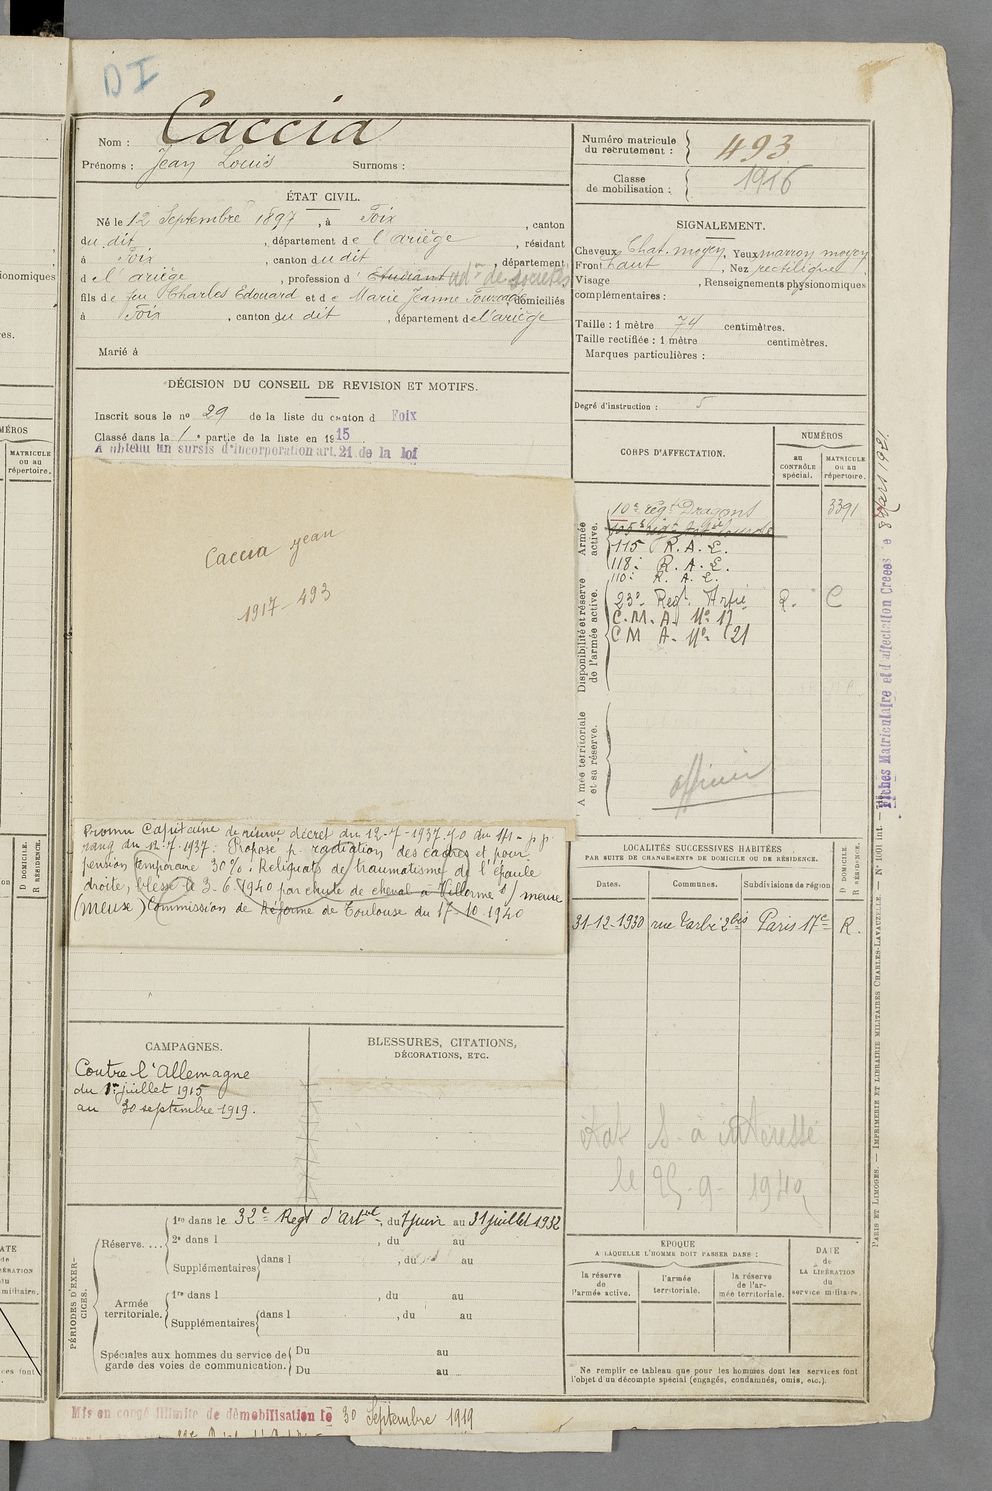 DI
Nom : Caccia
Prénoms : Jean Louis Surnoms :
ÉTAT CIVIL.
Né le 12 Septembre 1897, à Foix, canton
du dit, département de l'ariège, résidant
à Foix, canton du dit, département
de l'ariège, profession d' Etudiant adr de sociétés
fils de feu Charles Edouard et de Marie Jeanne, domiciliés
à Foix, canton du dit, département de l'ariège
Marié à
DÉCISION DU CONSEIL DE REVISION ET MOTIFS.
Inscrit sous le nº 29 de la liste du canton d Foix
Classé dans la 1e partie de la liste en 1915
A obtenu un sursis d'incorporation art. 21 de la loi
Caccia Jean
1917-493
Promu Capitaine de réserve décret du 12-7-1937 J.O du
rang du 12-7-1937. Proposé p. radiation des cadres et pour
pension temporaire 30% : Reliquats de traumatisme de l'épaule
droite, blessé le 3-6-1940 par chute de cheval à Villorme s/ meuse
(Meuse) Commission de Réforme de Toulouse du 17-10-1940
CAMPAGNES.
Contre l'Allemagne
du 1er juillet 1915
au 30 septembre 1919.
BLESSURES, CITATIONS,
DÉCORATIONS, ETC.
PÉRIODES D'EXERCICES.
Réserve....
1re dans le 32e Regt d'Art, du 7 juin au 31 juillet 1932
2e dans l , du au
Supplémentaires dans l , du au
Armée territoriale.
1re dans l , du au
Supplémentaires dans l , du au
Spéciales aux hommes du service de garde des voies de communication.
Du au
Du au
Mis en congé illimité de démobilisation le 30 Septembre 1919
Numéro matricule du recrutement : 493
Classe de mobilisation : 1916
SIGNALEMENT.
Cheveux Chat. moyen, Yeux marron moyen
Front haut, Nez rectiligne
Visage , Renseignements physionomiques
complémentaires :
Taille : 1 mètre 74 centimètres.
Taille rectifiée : 1 mètre centimètres.
Marques particulières :
Degré d'instruction : 5
CORPS D'AFFECTATION.
NUMÉROS
au CONTRÔLE spécial.
MATRICULE ou au répertoire.
Armée active.
10e régt Dragons 3391
115 R.A.L.
118e R.A.L.
110e R.A.L.
Disponibilité et réserve de l'armée active.
23e Regt Artie R. C
C.M.A. No 17
C M A. No 21
Armée territoriale et sa réserve.
officier
Fiches Matriculaire et d'affectation Créées le 8 Mars 1921
LOCALITÉS SUCCESSIVES HABITÉES
PAR SUITE DE CHANGEMENTS DE DOMICILE OU DE RÉSIDENCE.
Dates. Communes. Subdivisions de région
D DOMICILE. R RÉSIDENCE.
31-12-1930 rue Tarbé 2bis Paris 17e R.
état S. à intéressé
le 25-9-1940
EPOQUE
A LAQUELLE L'HOMME DOIT PASSER DANS :
la réserve de l'armée active.
l'armée territoriale.
la réserve de l'armée territoriale.
DATE de LA LIBÉRATION du service militaire.
Ne remplir ce tableau que pour les hommes dont les services font
l'objet d'un décompte spécial (engagés, condamnés, omis, etc.).
PARIS ET LIMOGES. — IMPRIMERIE ET LIBRAIRIE MILITAIRES CHARLES-LAVAUZELLE. — Nº 1001 int.